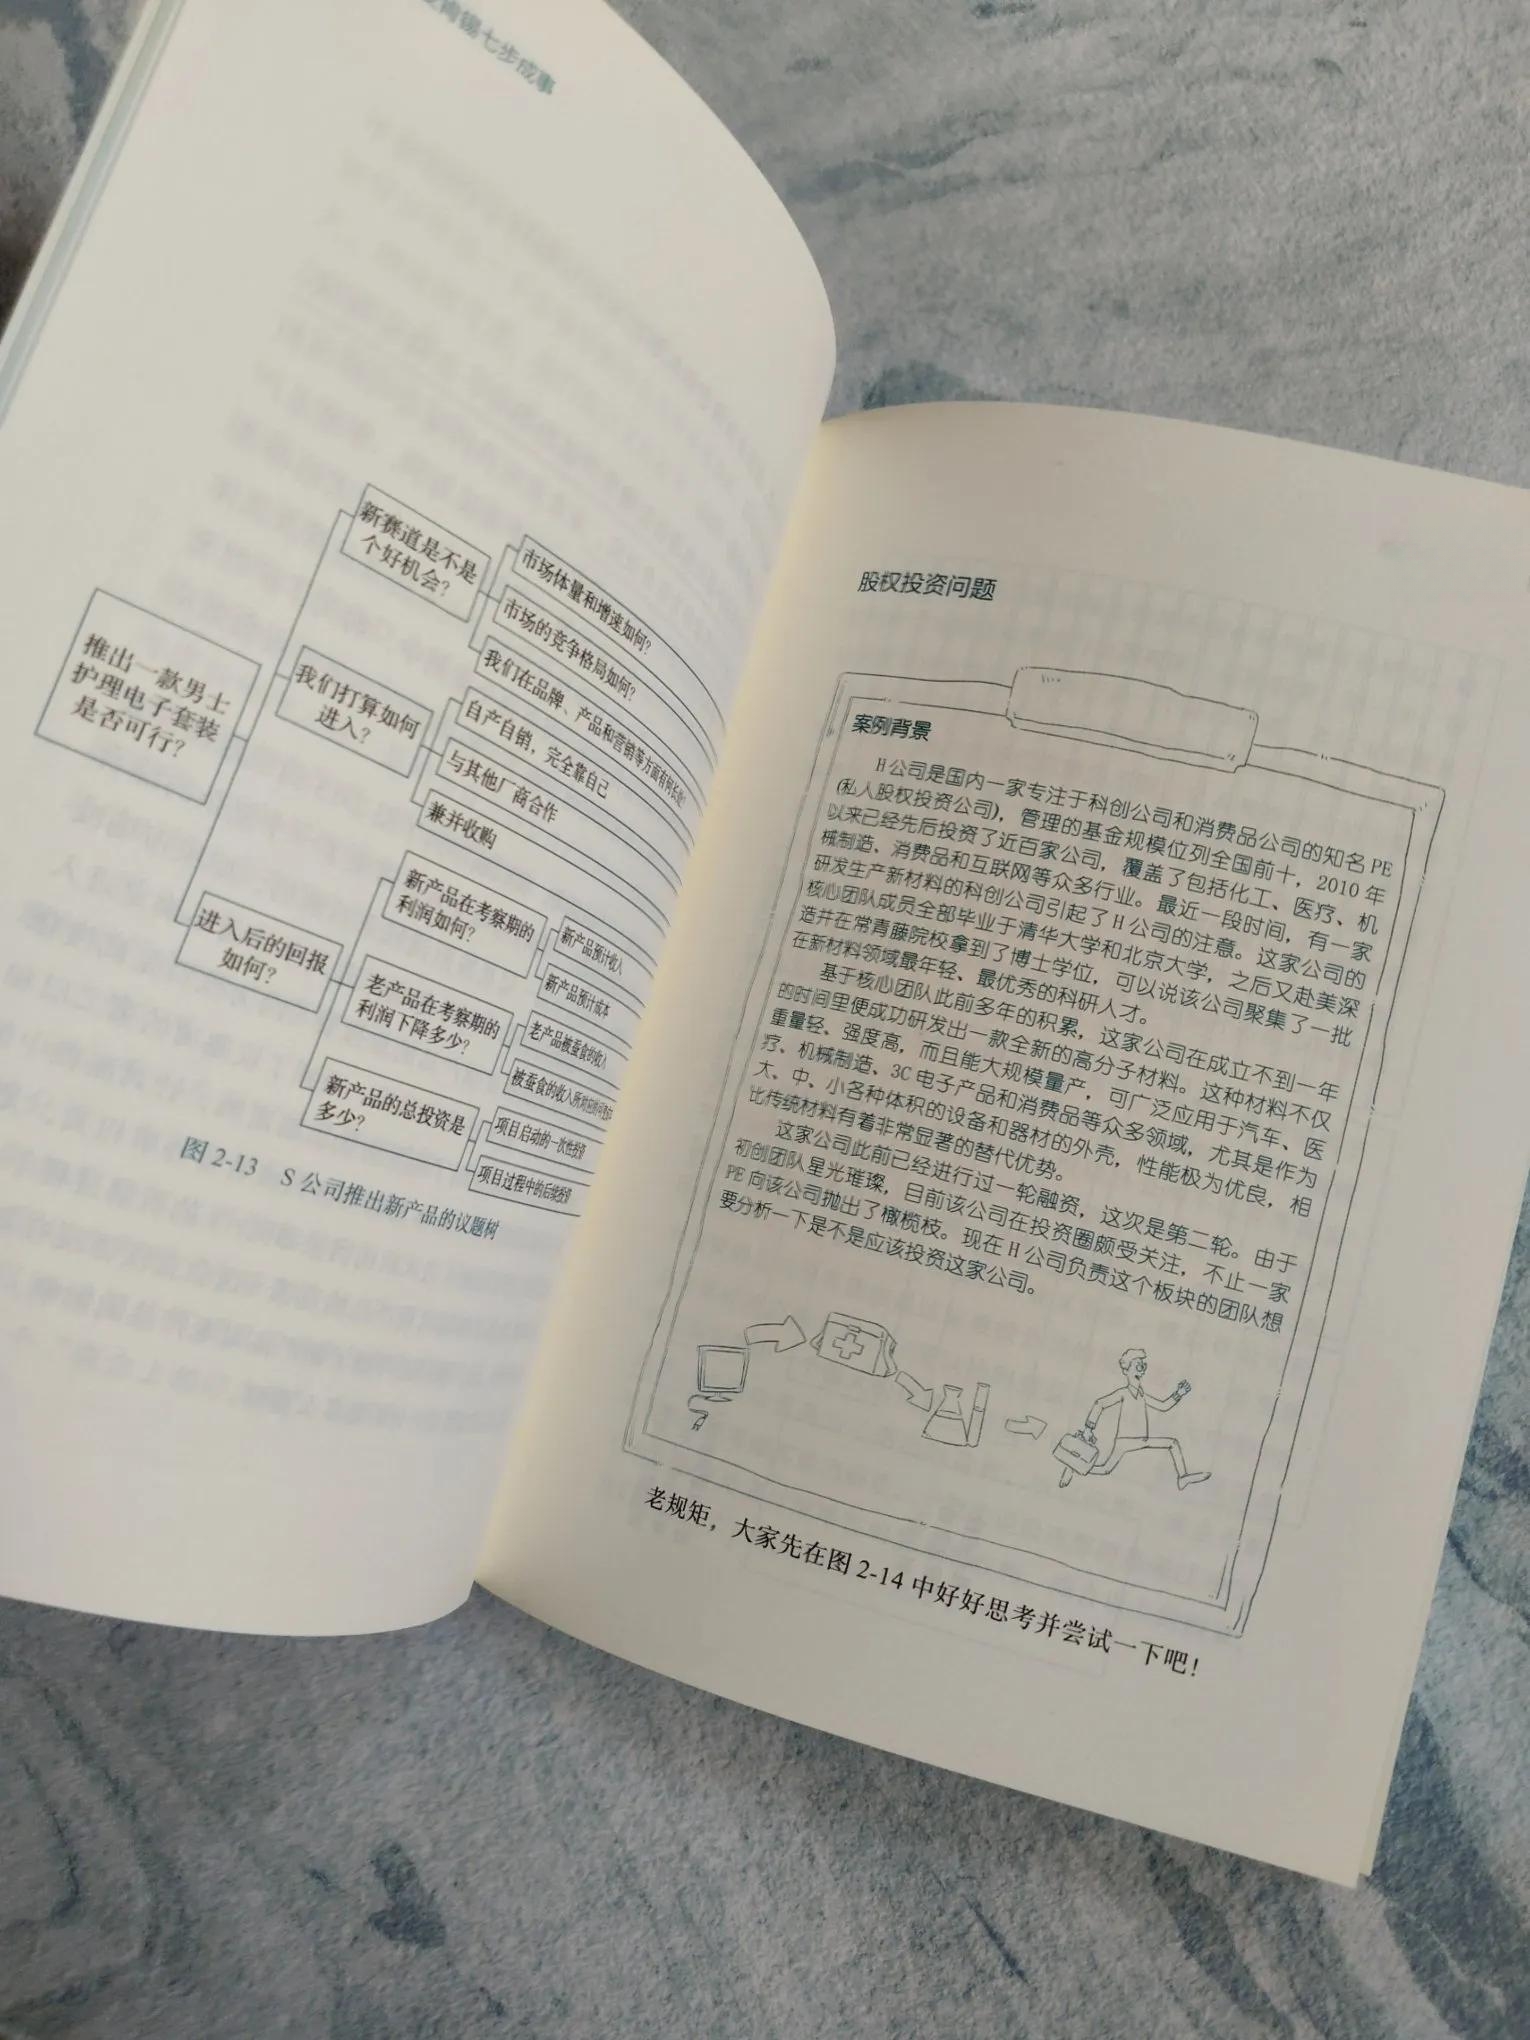 肯锡七步成事
推出一款男士
护理电子套装
是否可行？
新赛道是不是
个好机会？
市场体量和增速如何？
市场的竞争格局如何？
我们在品牌、产品和营销等方面有何长处？
我们打算如何
进入？
自产自销，完全靠自己
与其他厂商合作
兼并收购
进入后的回报
如何？
新产品在考察期的
利润如何？
新产品预计收入
新产品预计成本
老产品在考察期的
利润下降多少？
老产品被蚕食的收入
被蚕食的收入所对应的
新产品的总投资是
多少？
项目启动的一次性投资
项目过程中的后续投资
图 2-13 S 公司推出新产品的议题树
股权投资问题
案例背景
H 公司是国内一家专注于科创公司和消费品公司的知名 PE
(私人股权投资公司)，管理的基金规模位列全国前十，2010 年
以来已经先后投资了近百家公司，覆盖了包括化工、医疗、机
械制造、消费品和互联网等众多行业。最近一段时间，有一家
研发生产新材料的科创公司引起了 H 公司的注意。这家公司的
核心团队成员全部毕业于清华大学和北京大学，之后又赴美深
造并在常青藤院校拿到了博士学位，可以说该公司聚集了一批
在新材料领域最年轻、最优秀的科研人才。
基于核心团队此前多年的积累，这家公司在成立不到一年
的时间里便成功研发出一款全新的高分子材料。这种材料不仅
重量轻、强度高，而且能大规模量产，可广泛应用于汽车、医
疗、机械制造、3C 电子产品和消费品等众多领域，尤其是作为
大、中、小各种体积的设备和器材的外壳，性能极为优良，相
比传统材料有着非常显著的替代优势。
这家公司此前已经进行过一轮融资，这次是第二轮。由于
初创团队星光璀璨，目前该公司在投资圈颇受关注，不止一家
PE 向该公司抛出了橄榄枝。现在 H 公司负责这个板块的团队想
要分析一下是不是应该投资这家公司。
老规矩，大家先在图 2-14 中好好思考并尝试一下吧！